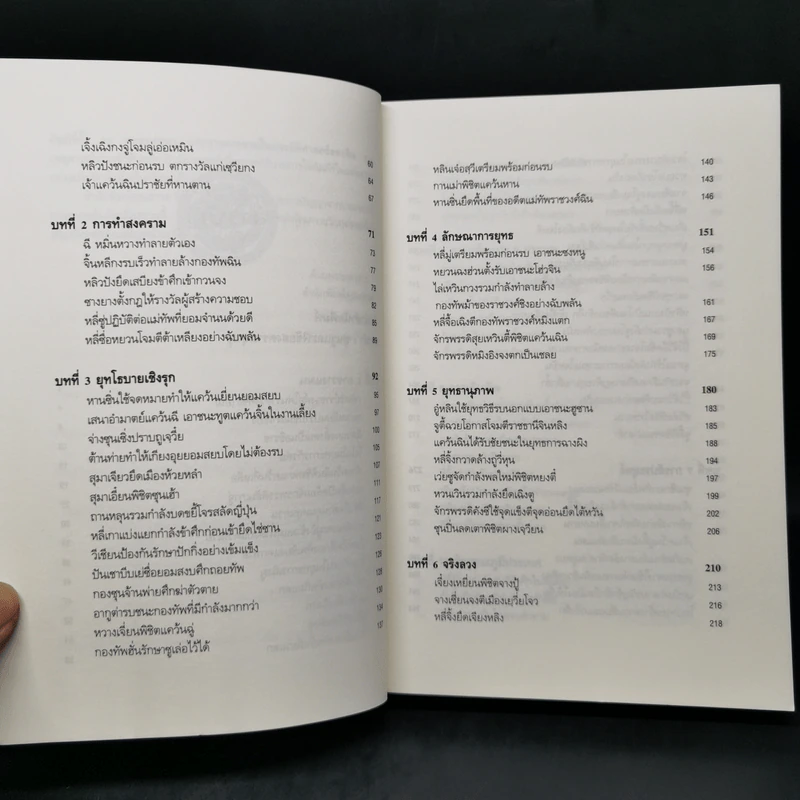 เจิ้งเฉิงกงจู่โจมลู่เอ่อเหมิน
หลิวปังชนะก่อนรบ ตกรางวัลแก่เซวียกง 60
เจ้าแคว้นฉินปราชัยที่หานตาน 64
67
บทที่ 2 การทำสงคราม 71
ฉี หมิ่นหวางทำลายตัวเอง 73
จิ้นหลีกงรบเร็วทำลายล้างกองทัพฉิน 77
หลิวปังยึดเสบียงข้าศึกเข้ากวนจง 79
ซางยางตั้งกฎให้รางวัลผู้สร้างความชอบ 82
หลี่ซู่ปฏิบัติต่อแม่ทัพที่ยอมจำนนด้วยดี 85
หลี่ซื่อหยวนโจมตีต้าเหลียงอย่างฉับพลัน 89
บทที่ 3 ยุทโธบายเชิงรุก 92
หานซิ่นใช้จดหมายทำให้แคว้นเยี่ยนยอมสยบ 95
เสนาอำมาตย์แคว้นฉี เอาชนะทูตแคว้นจิ้นในงานเลี้ยง 97
จ่างซุนเซิ่งปราบถูเจวี๋ย 100
ต้านท่ายทำให้เกียงอุยยอมสยบโดยไม่ต้องรบ
สุมาเจียวยึดเมืองห้วยหลำ
สุมาเอี๋ยนพิชิตซุนเฮ้า
ถานหลุนรวมกำลังบดขยี้โจรสลัดญี่ปุ่น 117
หลี่เกาแบ่งแยกกำลังข้าศึกก่อนเข้ายึดไช่ซาน 121
วีเซียนป้องกันรักษาปักกิ่งอย่างเข้มแข็ง
ปันเชาบีบเย่ซื่อยอมสงบศึกถอยทัพ 128
กองซุนจ้านพ่ายศึกฆ่าตัวตาย 130
อากู่ต่ารบชนะกองทัพที่มีกำลังมากกว่า 134
หวางเจี่ยนพิชิตแคว้นฉู่ 137
กองทัพฮั่นรักษาซูเล่อไว้ได้
หลินเจ๋อสวีเตรียมพร้อมก่อนรบ 140
กานเม่าพิชิตแคว้นหาน 143
หานซิ่นยึดพื้นที่ของอดีตแม่ทัพราชวงศ์ฉิน 146
บทที่ 4 ลักษณาการยุทธ 151
หลี่มู่เตรียมพร้อมก่อนรบ เอาชนะซงหนู 154
หยวนฉงฮ่วนตั้งรับเอาชนะโฮ่วจิน 156
ไล่เหวินกวงรวมกำลังทำลายล้าง
กองทัพม้าของราชวงศ์ชิงอย่างฉับพลัน 161
หลี่จื้อเฉิงตีกองทัพราชวงศ์หมิงแตก 167
จักรพรรดิสุยเหวินตี้พิชิตแคว้นเฉิน 169
จักรพรรดิหมิงอิงจงตกเป็นเชลย 175
บทที่ 5 ยุทธานุภาพ 180
อู่หลินใช้ยุทธวิธีรบนอกแบบเอาชนะฮูซาน 183
จูตี้ฉวยโอกาสโจมตีราชธานีจินหลิง 185
แคว้นฉินได้รับชัยชนะในยุทธการฉางผิง 188
หลี่จิ้งกวาดล้างถู่วี่หุน 194
เว่ยซูจัดกำลังพลใหม่พิชิตหยงตี๋ 197
หวนเวินรวมกำลังยึดเฉิงตู 199
จักรพรรดิคังซีใช้จุดแข็งตีจุดอ่อนยึดไต้หวัน 202
ซุนปิ่นลดเตาพิชิตผางเจวียน 206
บทที่ 6 จริงลวง 210
เจี่ยงเหยี่ยนพิชิตจางปู้ 213
จางเซี่ยนจงตีเมืองเยวี่ยโจว 216
หลี่จิ้งยึดเจียงหลิง 218